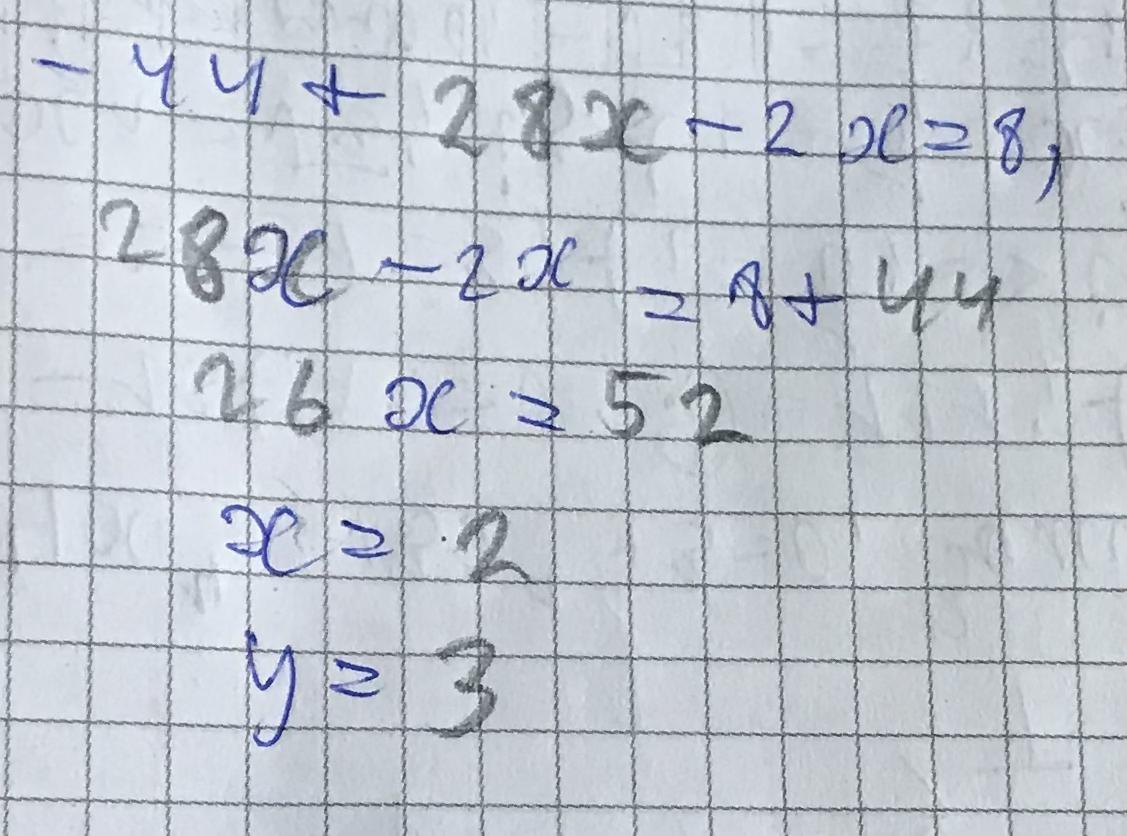 - 44 + 28x - 2x = 8,
28x - 2x = 8 + 44
26x = 52
x = 2
y = 3